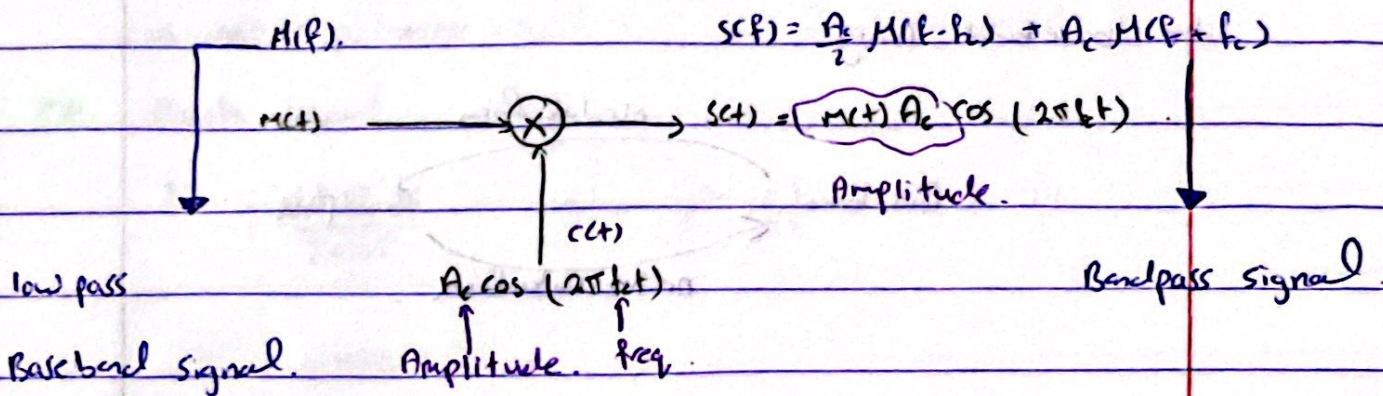 M(f). S(f) = Ac/2 M(f-fc) + Ac M(f+fc)
m(t) × s(t) = m(t) Ac cos (2πfct).
Amplitude.
c(t)
low pass Ac cos (2πfct) Bandpass signal.
Baseband signal. Amplitude. freq.